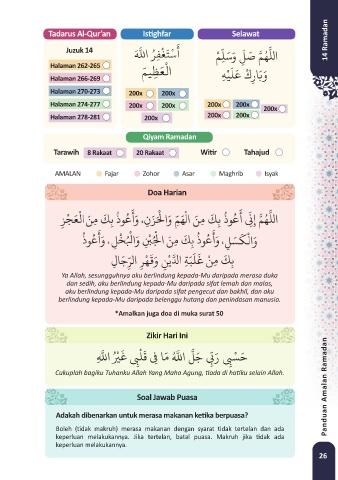 Tadarus Al-Qur'an
Juzuk 14
Halaman 262-265
Halaman 266-269
Halaman 270-273
Halaman 274-277
Halaman 278-281
Istighfar
أَسْتَغْفِرُ اللَّهَ
الْعَظِيمَ
200x 200x
200x 200x
200x
Selawat
اللَّهُمَّ صَلِّ وَسَلِّمْ
وَبَارِكْ عَلَيْهِ
200x 200x
200x
200x 200x
Qiyam Ramadan
Tarawih 8 Rakaat 20 Rakaat Witir Tahajud
AMALAN Fajar Zohor Asar Maghrib Isyak
Doa Harian
اللَّهُمَّ إِنِّي أَعُوذُ بِكَ مِنَ الْهَمِّ وَالْحَزَنِ، وَأَعُوذُ بِكَ مِنَ الْعَجْزِ
وَالْكَسَلِ، وَأَعُوذُ بِكَ مِنَ الْجُبْنِ وَالْبُخْلِ، وَأَعُوذُ
بِكَ مِنْ غَلَبَةِ الدَّيْنِ وَقَهْرِ الرِّجَالِ
Ya Allah, sesungguhnya aku berlindung kepada-Mu daripada merasa duka
dan sedih, aku berlindung kepada-Mu daripada sifat lemah dan malas,
aku berlindung kepada-Mu daripada sifat pengecut dan bakhil, dan aku
berlindung kepada-Mu daripada belenggu hutang dan penindasan manusia.
*Amalkan juga doa di muka surat 50
Zikir Hari Ini
حَسْبِيَ رَبِّي جَلَّ اللَّهُ مَا فِي قَلْبِي غَيْرُ اللَّهِ
Cukuplah bagiku Tuhanku Allah Yang Maha Agung, tiada di hatiku selain Allah.
Soal Jawab Puasa
Adakah dibenarkan untuk merasa makanan ketika berpuasa?
Boleh (tidak makruh) merasa makanan dengan syarat tidak tertelan dan ada
keperluan melakukannya. Jika tertelan, batal puasa. Makruh jika tidak ada
keperluan melakukannya.
14 Ramadan
Panduan Amalan Ramadan
26